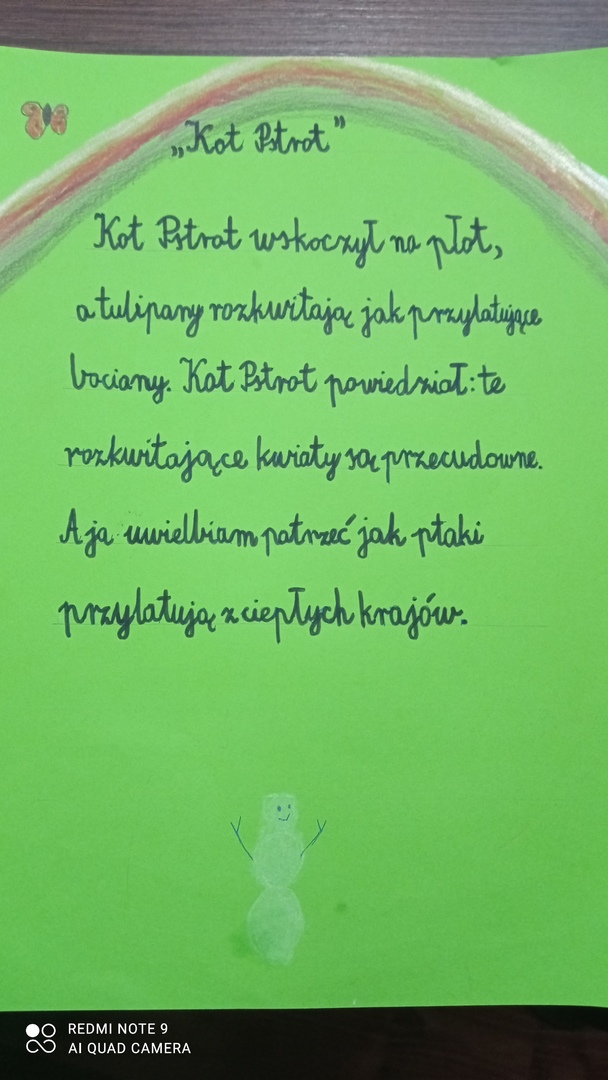 „Kot Pstrot”
Kot Pstrot wskoczył na płot,
a tulipany rozkwitają jak przylatujące
bociany. Kot Pstrot powiedział: te
rozkwitające kwiaty są przecudowne.
A ja uwielbiam patrzeć jak ptaki
przylatują z ciepłych krajów.
REDMI NOTE 9
AI QUAD CAMERA